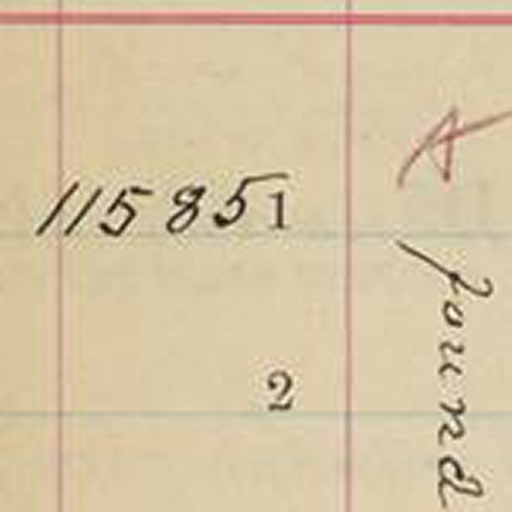 115851
A
found
2